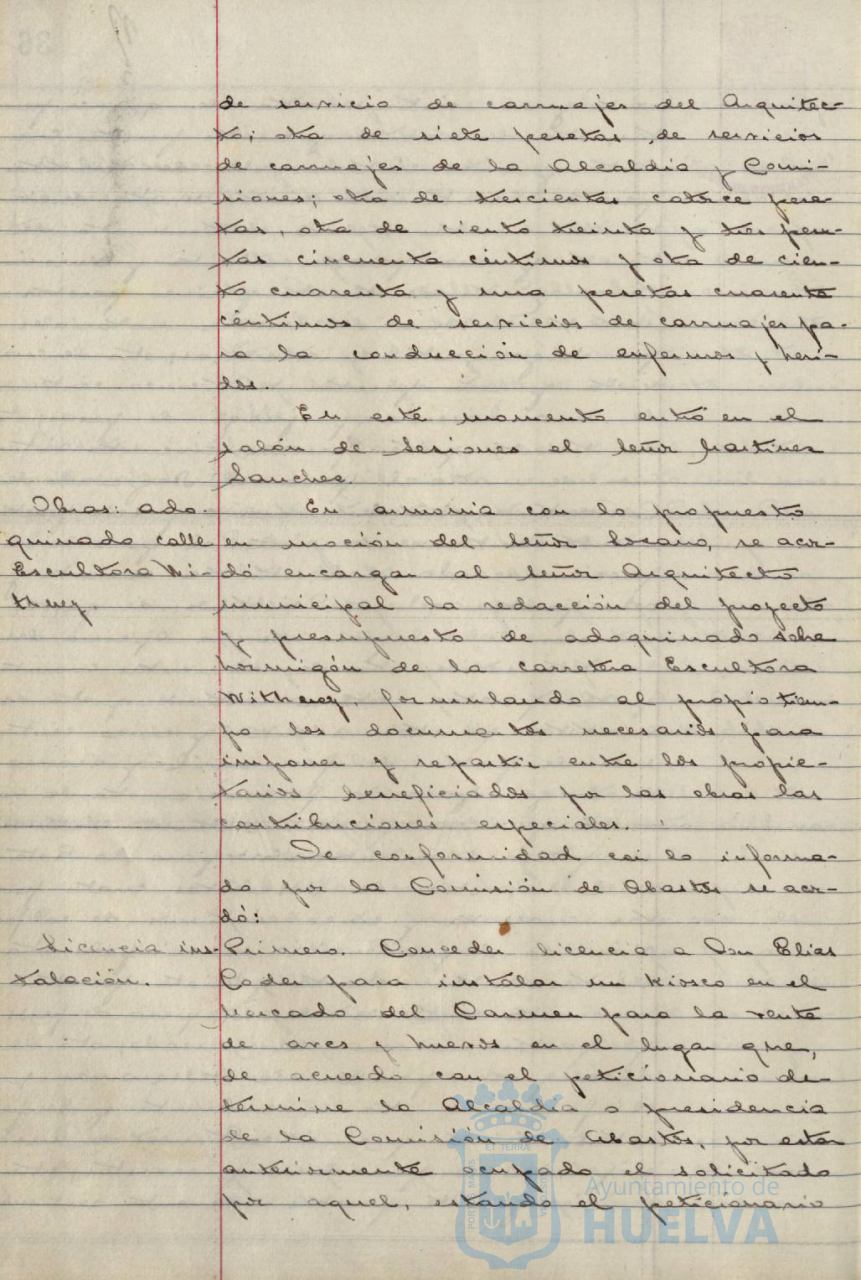 de servicio de carruajes del Arquitec-
to; otra de siete pesetas, de servicios
de carruajes de la Alcaldía y Comi-
siones; otra de trescientas catorce pese-
tas, otra de ciento treinta y tres pese-
tas cincuenta céntimos y otra de cien-
to cuarenta y una pesetas cuarenta
céntimos de servicios de carruajes pa-
ra la conducción de enfermos y heri-
dos.
En este momento entró en el
salón de Sesiones el Señor Martinez
Sanchez.
Obras: ado-
quinado calle
Escultora Wi-
thney.
En armonia con lo propuesto
en moción del Señor Lozano, se acor-
dó encargar al Señor Arquitecto
municipal la redacción del proyecto
y presupuesto de adoquinado sobre
hormigón de la carretera Escultora
Withney, formulando al propio tiem-
po los documentos necesarios para
imponer y repartir entre los propie-
tarios beneficiados por las obras las
contribuciones especiales.
De conformidad con lo informa-
do por la Comisión de Abastos se acor-
dó:
Licencia ins-
talación.
Primero. Conceder licencia a Don Elias
Coder para instalar un kiosco en el
Mercado del Carmen para la venta
de aves y huevos en el lugar que,
de acuerdo con el peticionario de-
termine la Alcaldía o presidencia
de la Comisión de Abastos, por estar
anteriormente ocupado el solicitado
por aquel, estando el peticionario
Ayuntamiento de
HUELVA